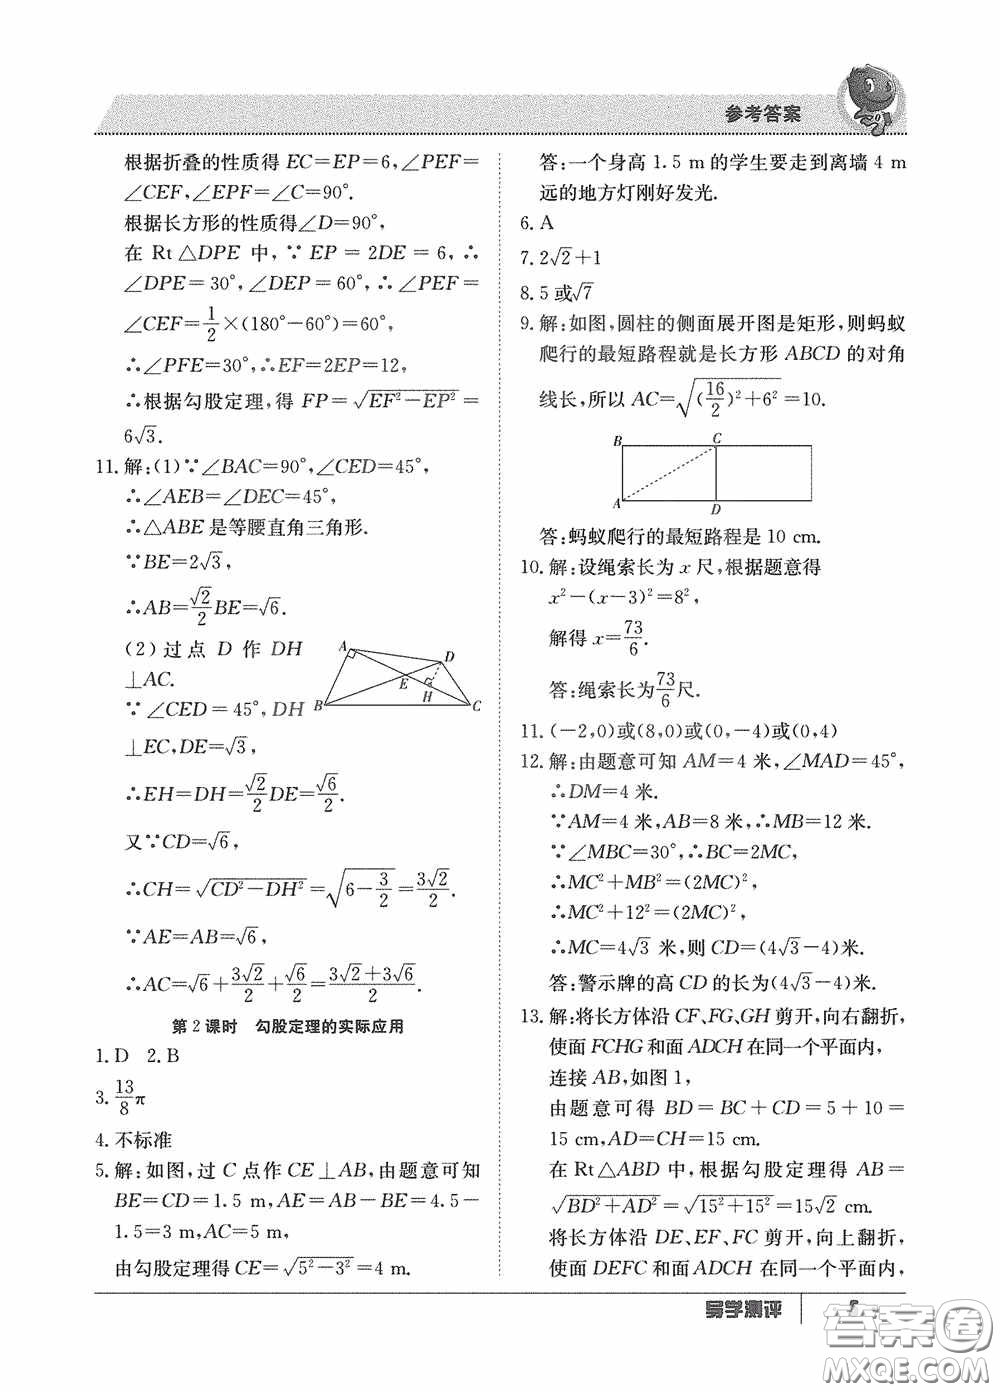 参考答案
根据折叠的性质得 EC=EP=6,∠PEF=
∠CEF,∠EPF=∠C=90°.
根据长方形的性质得∠D=90°,
在 Rt △DPE 中,∵ EP = 2DE = 6,∴
∠DPE = 30°,∠DEP = 60°,∴ ∠PEF =
∠CEF=1/2×(180°-60°)=60°,
∴∠PFE=30°,∴EF=2EP=12,
∴根据勾股定理,得 FP=√(EF²-EP²)=
6√3.
11. 解:(1)∵∠BAC=90°,∠CED=45°,
∴∠AEB=∠DEC=45°,
∴△ABE 是等腰直角三角形.
∵BE=2√3,
∴AB=√2/2 BE=√6.
(2) 过 点 D 作 DH
⊥AC.
∵ ∠CED = 45°, DH
⊥EC,DE=√3,
∴EH=DH=√2/2 DE=√6/2.
又∵CD=√6,
∴CH=√(CD²-DH²)=√(6-3/2)=3√2/2.
∵AE=AB=√6,
∴AC=√6+3√2/2+√6/2=(3√2+3√6)/2.
A
D
E
H
B
C
第 2 课时 勾股定理的实际应用
1. D 2. B
3. 13/8 π
4. 不标准
5. 解:如图,过 C 点作 CE⊥AB,由题意可知
BE=CD=1.5 m,AE=AB-BE=4.5-
1.5=3 m,AC=5 m,
由勾股定理得 CE=√(5²-3²)=4 m.
答:一个身高 1.5 m 的学生要走到离墙 4 m
远的地方灯刚好发光.
6. A
7. 2√2+1
8. 5 或√7
9. 解:如图,圆柱的侧面展开图是矩形,则蚂蚁
爬行的最短路程就是长方形 ABCD 的对角
线长,所以 AC=√((16/2)²+6²)=10.
B
C
A
D
答:蚂蚁爬行的最短路程是 10 cm.
10. 解:设绳索长为 x 尺,根据题意得
x²-(x-3)²=8²,
解得 x=73/6.
答:绳索长为73/6尺.
11. (-2,0)或(8,0)或(0,-4)或(0,4)
12. 解:由题意可知 AM=4 米,∠MAD=45°,
∴DM=4 米.
∵AM=4 米,AB=8 米,∴MB=12 米.
∵∠MBC=30°,∴BC=2MC,
∴MC²+MB²=(2MC)²,
∴MC²+12²=(2MC)²,
∴MC=4√3 米,则 CD=(4√3-4)米.
答:警示牌的高 CD 的长为(4√3-4)米.
13. 解:将长方体沿 CF、FG、GH 剪开,向右翻折,
使面 FCHG 和面 ADCH 在同一个平面内,
连接 AB,如图 1,
由题意可得 BD = BC + CD = 5 + 10 =
15 cm,AD=CH=15 cm.
在 Rt△ABD 中,根据勾股定理得 AB=
√(BD²+AD²)=√(15²+15²)=15√2 cm.
将长方体沿 DE、EF、FC 剪开,向上翻折,
使面 DEFC 和面 ADCH 在同一个平面内,
导学测评
答案卷
MXQE.COM